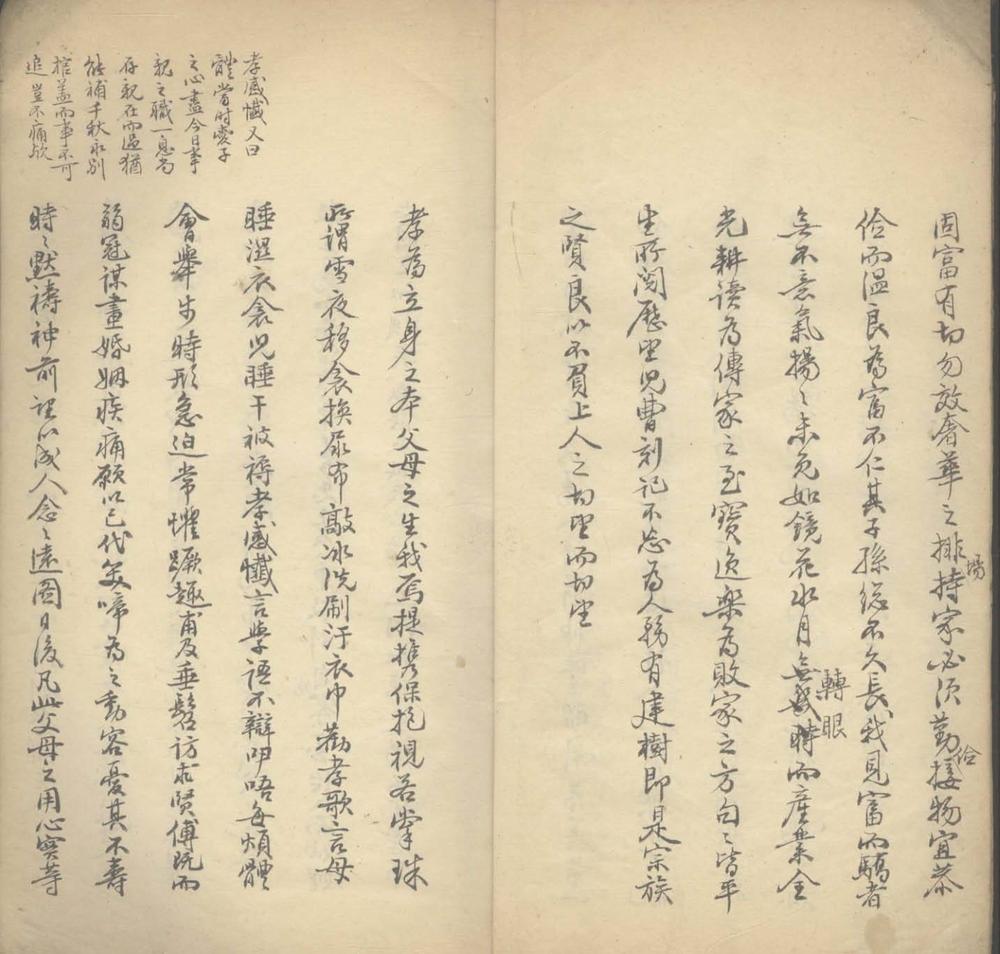 固富有切勿效奢華之排塲持家必須勤儉接物宜恭
儉而溫良為富不仁其子孫總不久長我見富而驕者
無不意氣揚々未免如鏡花水月無幾時轉眼而產業全
光耕读為傳家之至寶逸樂為敗家之方句々皆平
生所閱歷望児曹刻記不忘為人務有建樹即是宗族
之賢良以不負上人之切望而切望
孝感懺又曰
體當时愛子
之心盡今日事
親之職一息尚
存親在而温猶
能補千秋永別
棺盖而事不可
追豈不痛欤
孝為立身之本父母之生我焉提携保抱視若掌珠
所謂雪夜移衾換尿布敲冰洗刷汙衣巾勸孝歌言母
睡濕衣衾児睡干被褥孝感懺言學语不辯呷唔每煩體
會舉步時形急迫常懼蹶趨甫及垂髫访求贤傅既而
弱冠謀畫婚姻疾痛願以己代笑啼為之動容憂其不壽
時々默禱神前望以成人念々遠圖日後凡此父母之用心實等